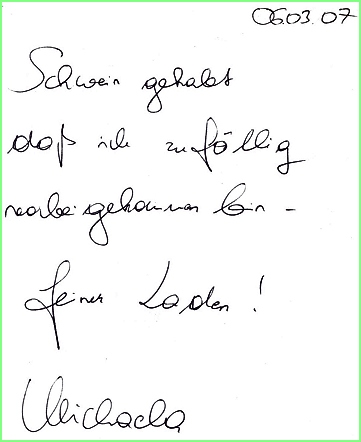 06.03.07
Schwein gehabt
daß ich zufällig
vorbeigekommen bin -
feiner Laden!
Michaela